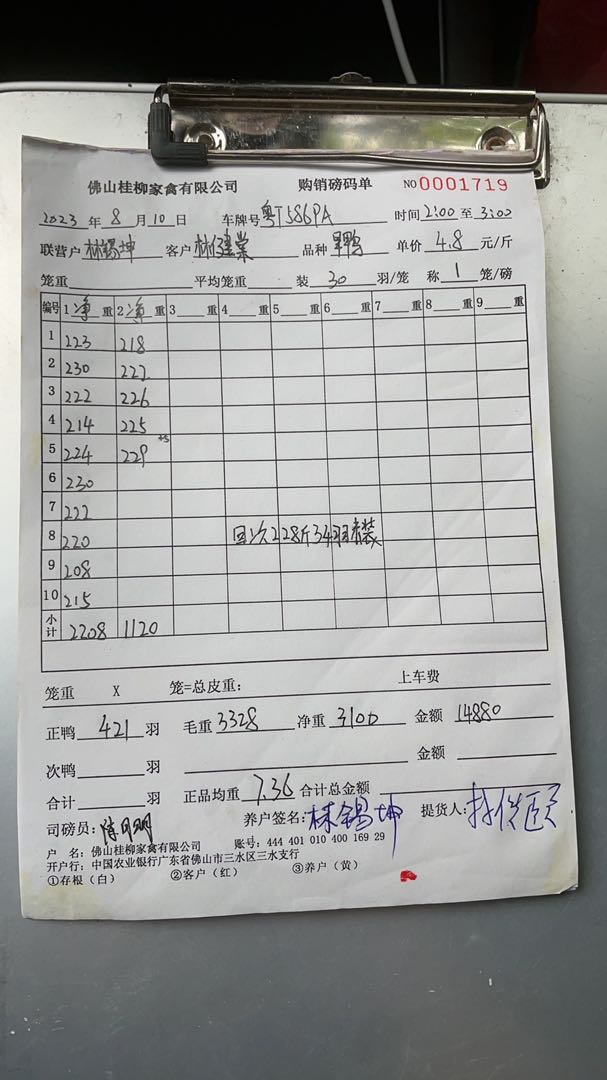 佛山桂柳家禽有限公司 购销磅码单 NO 0001719
2023 年 8 月 10 日 车牌号 粤T586PA 时间 2:00 至 3:00
联营户 林锡坤 客户 品种 单价 4.8 元/斤
笼重 平均笼重 装 30 羽/笼 称 1 笼/磅
编号 1 净 重 2 净 重 3 重 4 重 5 重 6 重 7 重 8 重 9 重
1 223 218
2 230 222
3 222 226
4 214 225
5 224 229 +5
6 230
7 222
8 220 回次228斤34羽未装
9 208
10 215
小计 2208 1120
笼重 X 笼=总皮重: 上车费
正鸭 421 羽 毛重 3328 净重 3100 金额 14880
次鸭 羽 金额
合计 羽 正品均重 7.36 合计总金额
司磅员: 养户签名: 林锡坤 提货人:
户 名: 佛山桂柳家禽有限公司 账号: 444 401 010 400 169 29
开户行: 中国农业银行广东省佛山市三水区三水支行
①存根（白） ②客户（红） ③养户（黄）